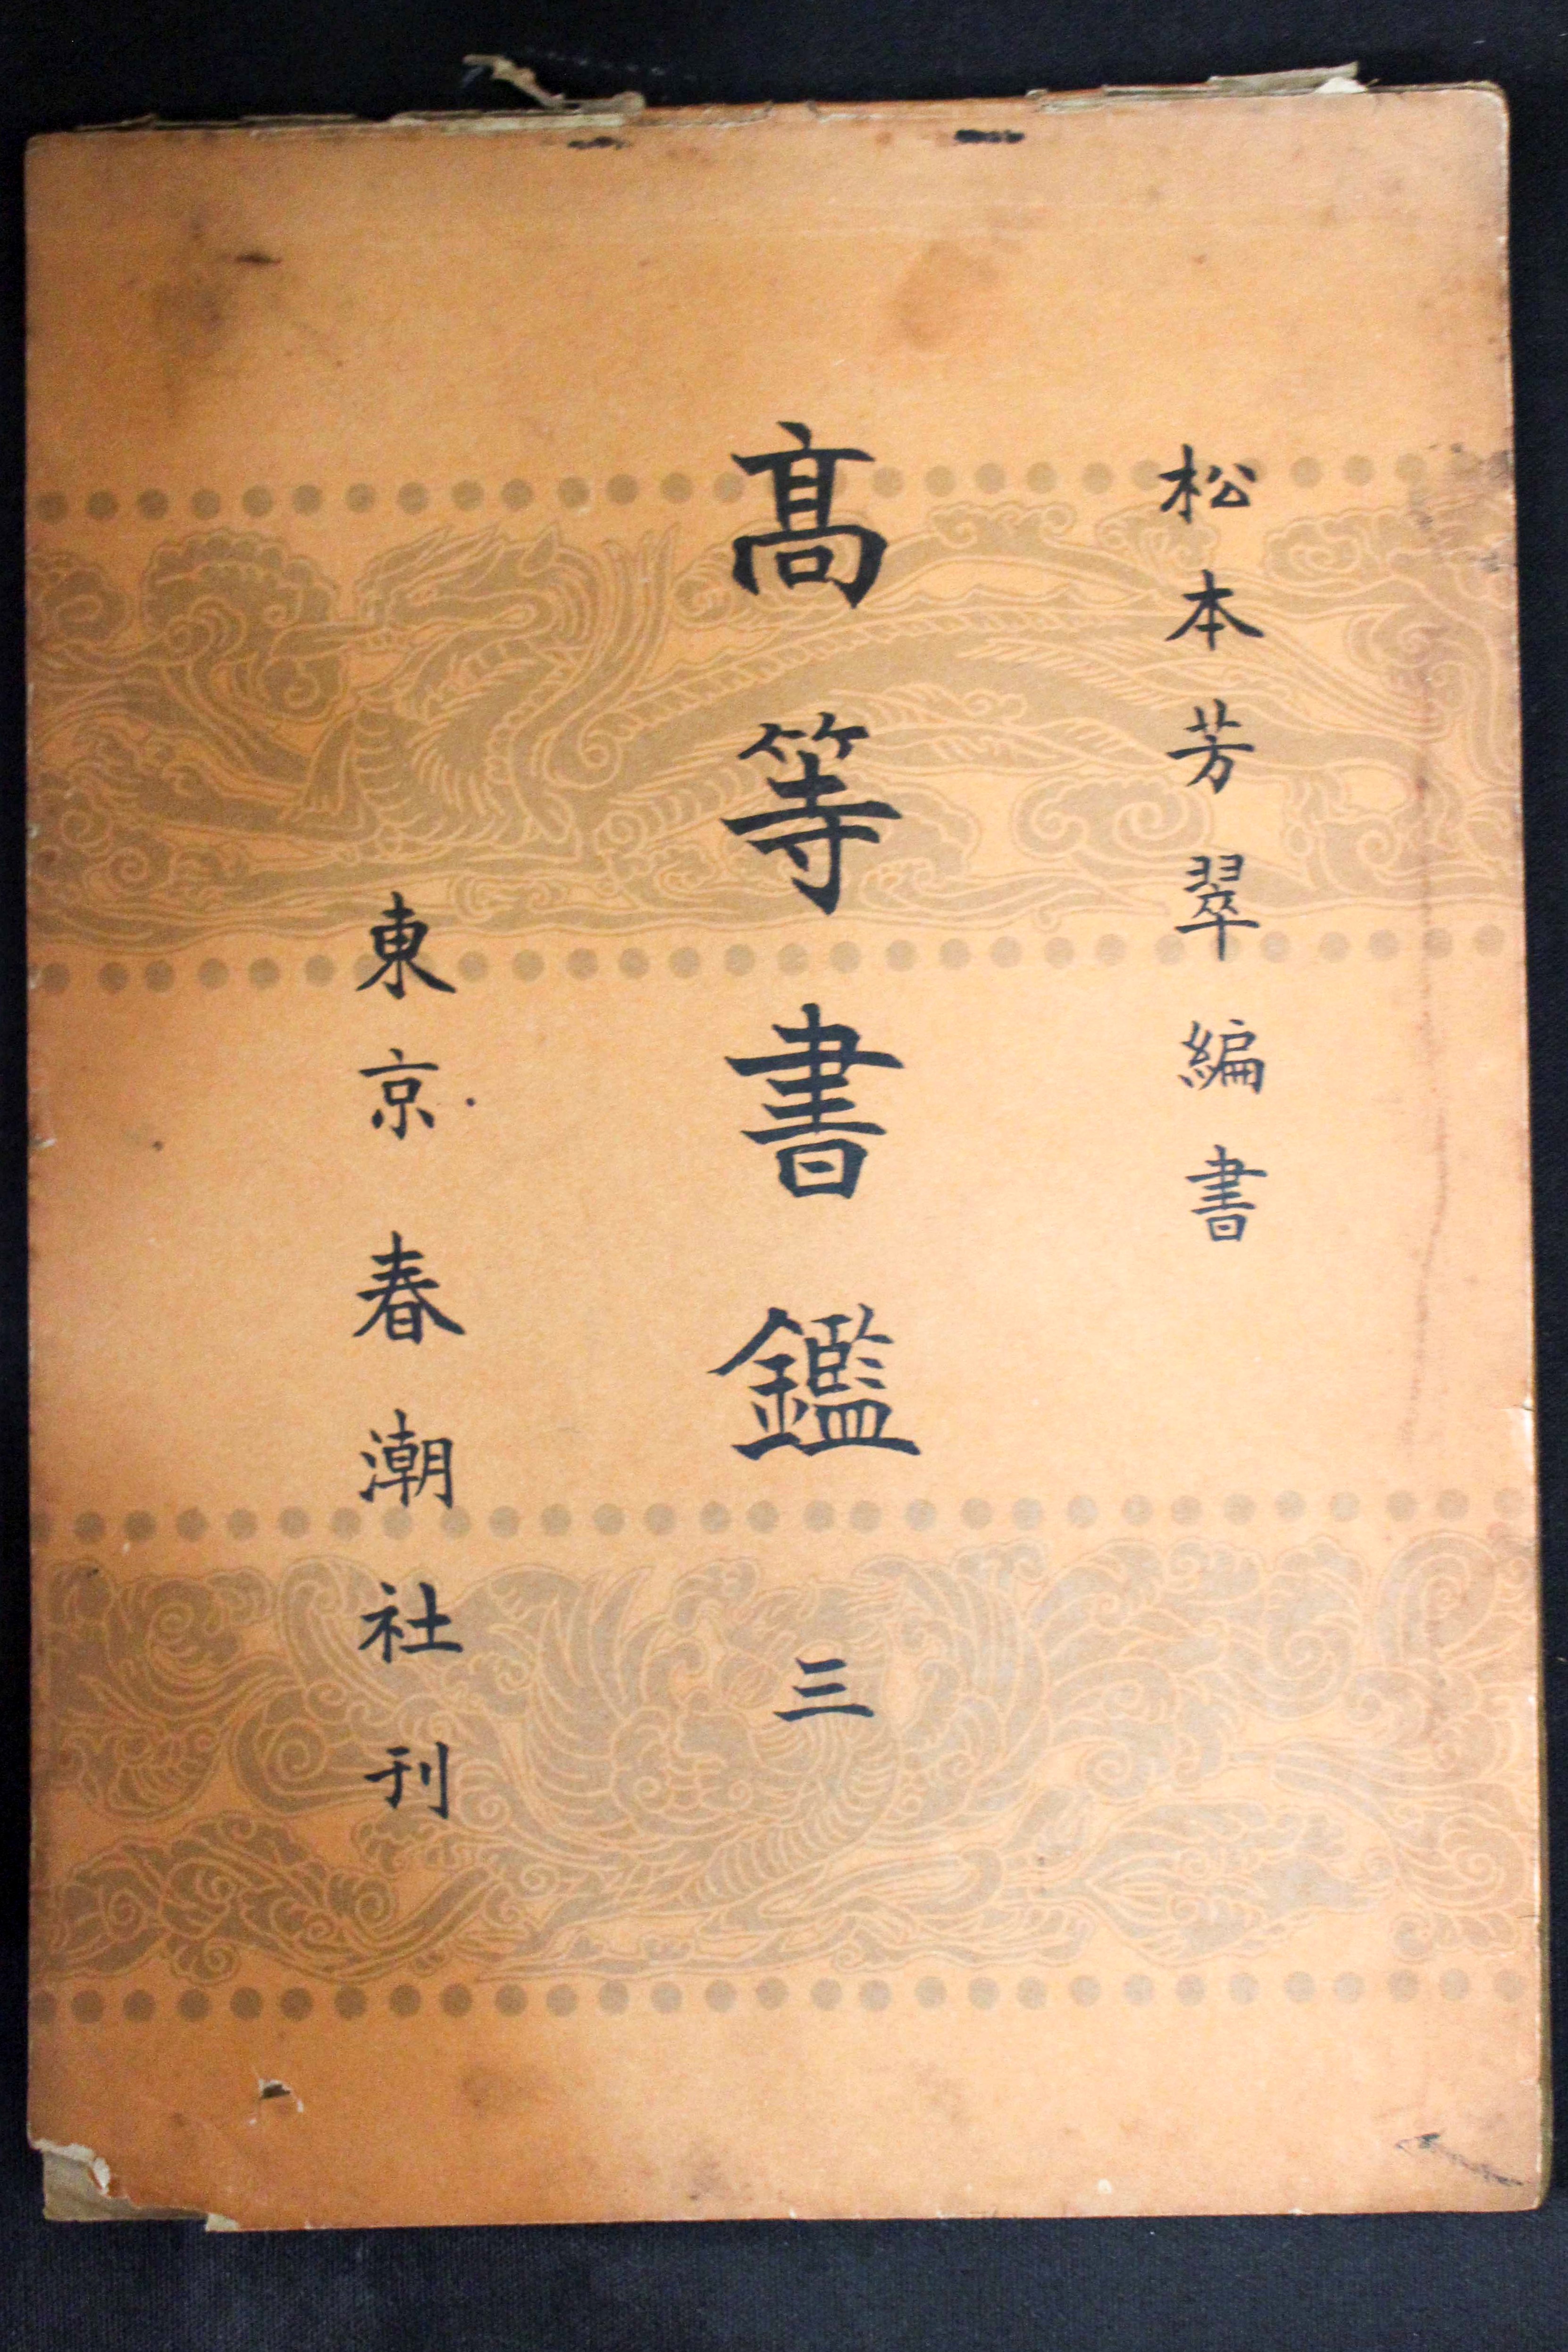 松本芳翠編書
髙等書鑑 三
東京春潮社刊